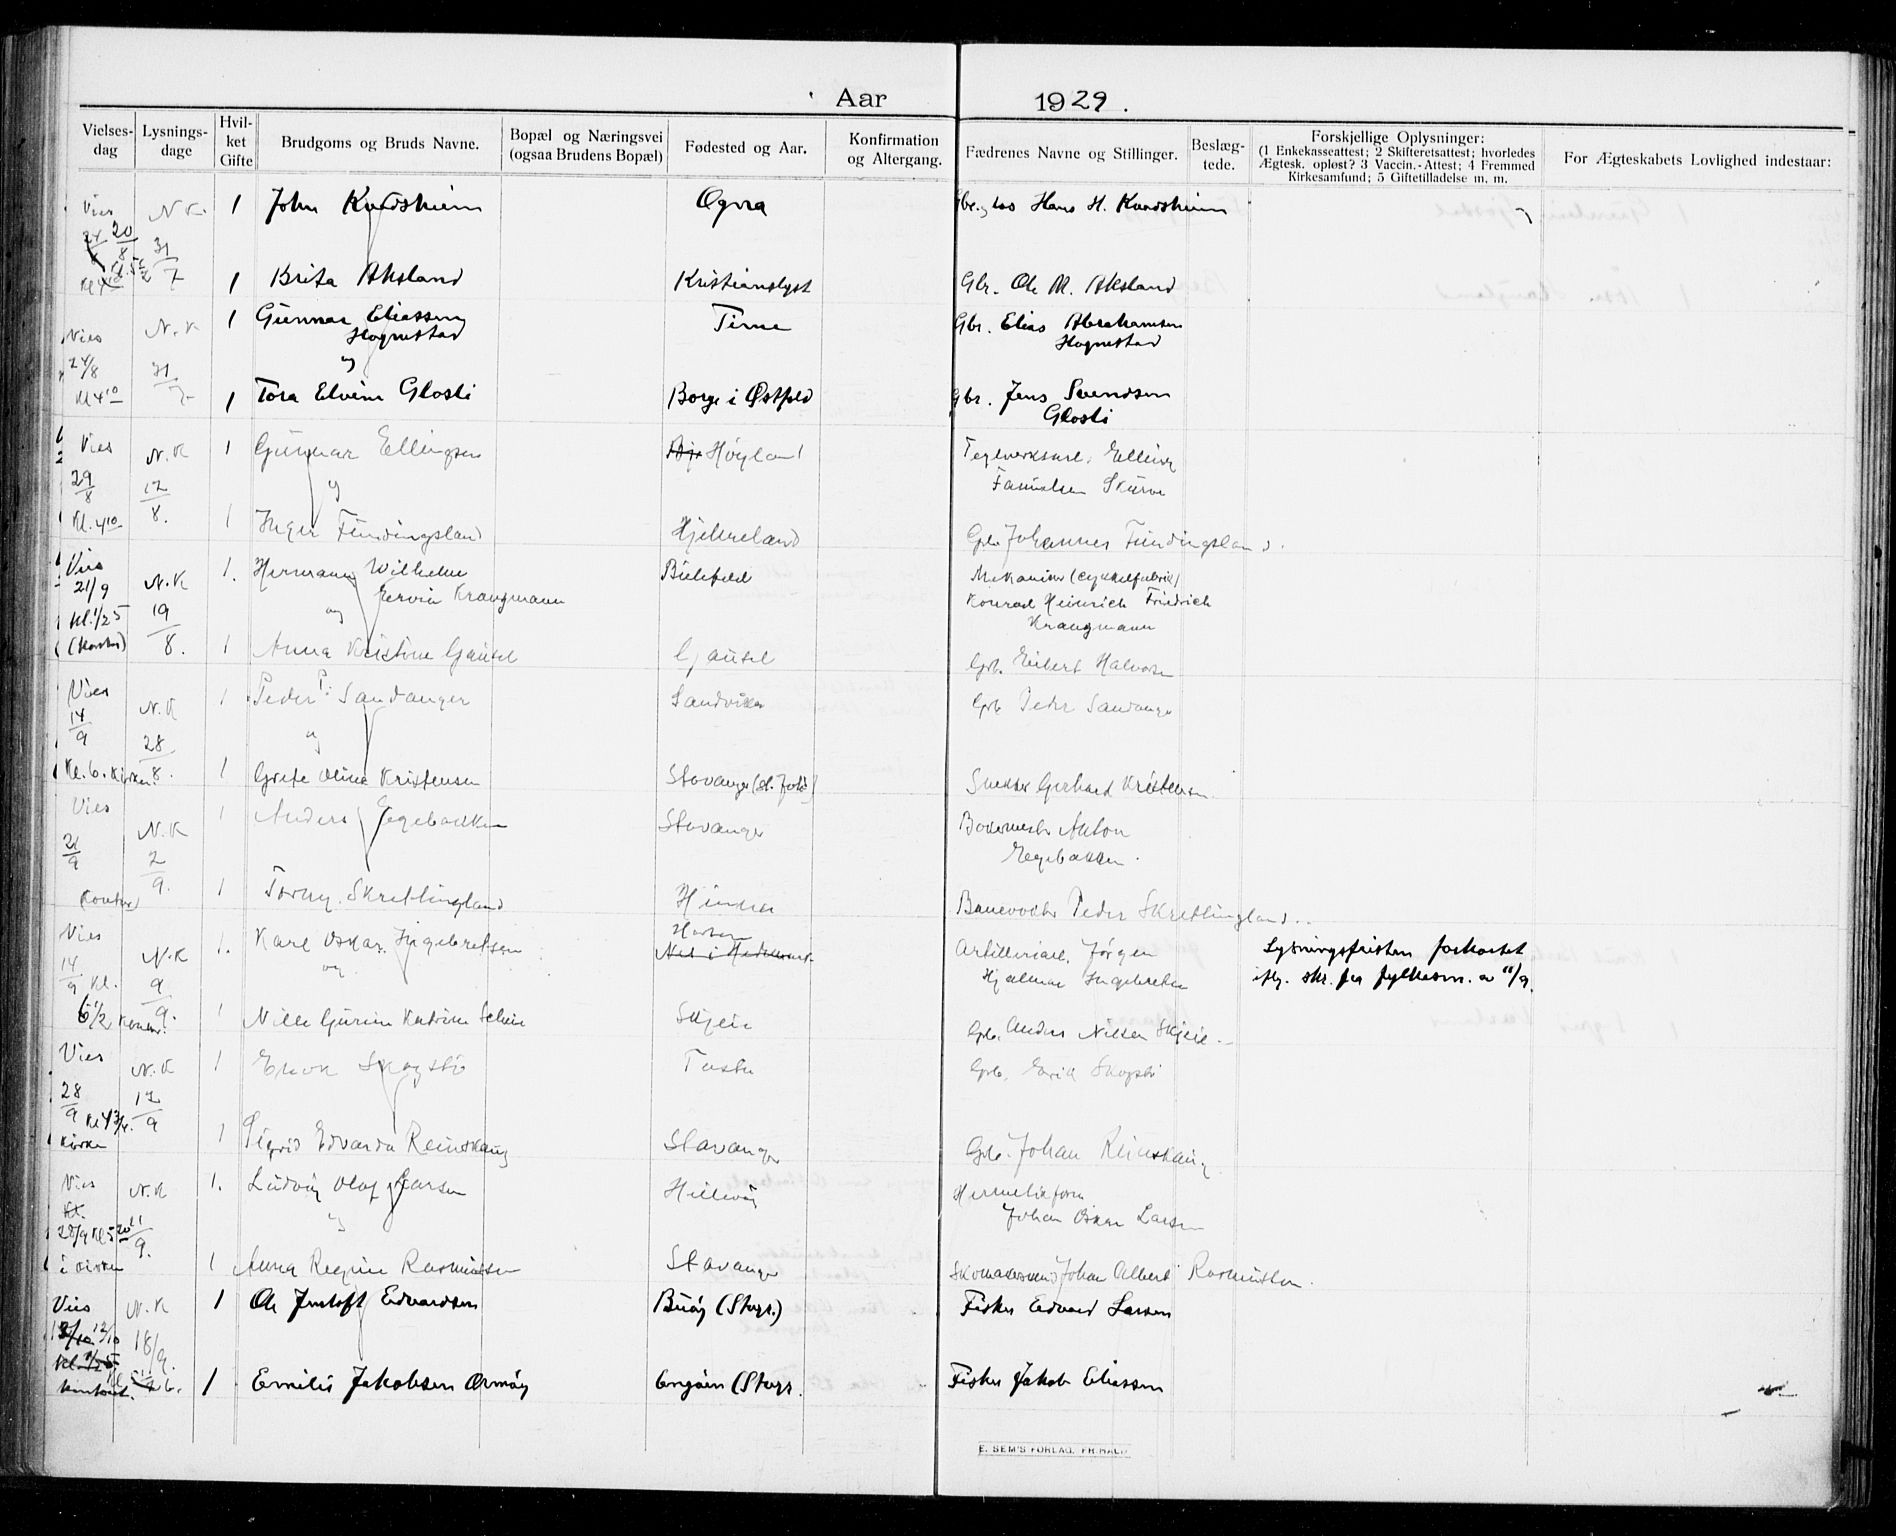 Aar 1929.
Vielses-dag
Lysnings-dage
Hvil-ket Gifte
Brudgoms og Bruds Navne.
Bopæl og Næringsvei (ogsaa Brudens Bopæl)
Fødested og Aar.
Konfirmation og Altergang.
Fædrenes Navne og Stillinger.
Beslæg-tede.
Forskjellige Oplysninger:
(1 Enkekasseattest; 2 Skifteretsattest; hvorledes
Ægtesk. opløst? 3 Vaccin.-Attest; 4 Fremmed
Kirkesamfund; 5 Giftetilladelse m. m.
For Ægteskabets Lovlighed indestaar:
Vies N.K. 1 John Kvadsheim Ogna Hans H. Kvadsheim
20/8 31/7
1 Brita Aksland Kristianslyst Gbr. Ole M. Aksland
Vies N.K 1 Gunnar Eliassen Time Gbr. Elias Abrahamsen
Hognestad Hognestad
24/8 31/7 og
Kl 4 10 1 Tora Elvine Glosli Borge i Østfold Gbr. Jens Svendsen
Glosli
Vies N.K 1 Gunnar Ellingsen Høyland Teglverksarb. Elling
29/8 17/8. og Skurve
Kl. 4 10 1 Inger Fundingsland Hjelmeland Gbr. Johannes Fundingsland.
Vies N.K 1. Hermann Wilhelm Bielefeld Mekaniker (cykkelfabrik)
21/9 Erwin Krangmann Konrad Heinrich Friedrich
Kl. 1/2 5 19/8. og Krangmann
1 Anna Kristine Gausel Gausel Gbr. Eilert Halvorsen
Vies N.K 1 Peder P. Sandanger Sandviken Gbr Peder Sandanger
14/9 28/8. og
Kl. 6. Kirken 1 Grete Oline Kristensen Stavanger (St. Joh) Snekker Gerhard Kristensen
Vies N.K 1 Anders Egebakken Stavanger Anton
21/9 2/9. Egebakken.
Kontor 1 Torny Skretlingland Hinna Banevokter Peder Skretlingland.
Vies N.K 1. Karl Oskar Ingebretsen Horten Artilleriarb. Jørgen Lysningsfristen forkortet
14/9 Kl. 9/9. og Hjalmar Ingebretsen iflg. skr. fra fylkesm. av 11/9.
6 1/2 1 Nille Gurine Katrine Skjeie Gbr. Anders Nilsen Skjeie.
Vies N.K 1 Enok Skogsbø Tasta Gbr. Erik Skogsbø
28/9 Kl 4 3/4. 17/9
Kirke 1 Sigrid Edvarda Reinskaug Stavanger Gbr. Johan Reinskaug
Vies N.K 1. Ludvig Olaf Larsen Hillevåg Hermetikform
28/9 Kl 5 20 21/9. og Johan Oskar Larsen
i kirken 1 Anna Regine Rasmussen Stavanger Skomakersvend Johan Albert Rasmussen.
Vies N.K 1 Ole Jentoft Edvardsen Buøy (Stvgr.) Fisker Edvard Larsen
12/10 18/9.
kontoret. 1 Emilie Jakobsen Ormøy Engøen (Stvgr. Fisker Jakob Eliassen
E. SEM'S FORLAG, FR.HALD